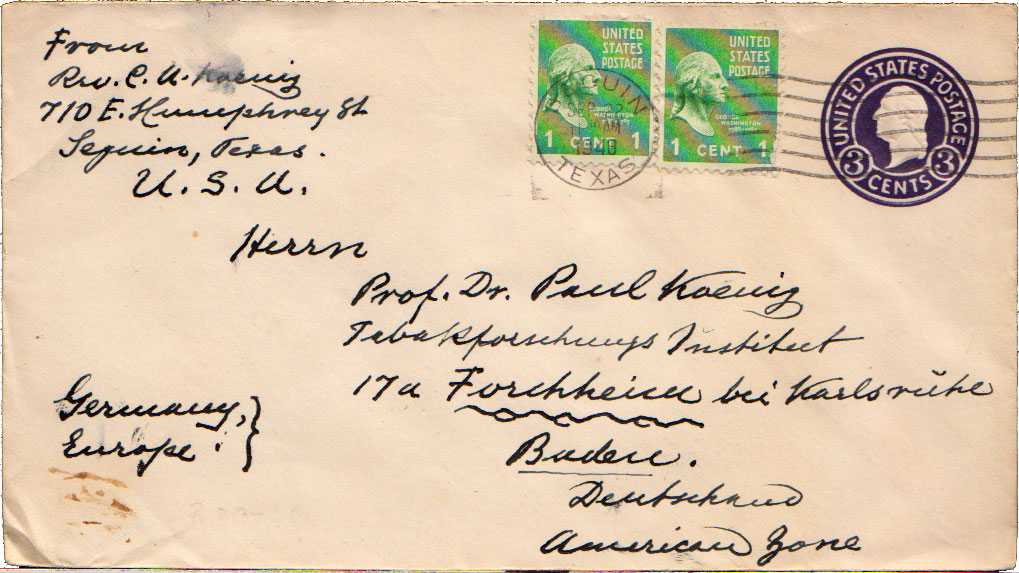 From
Rev. C. A. Koenig
710 E. Humphrey St.
Seguin, Texas.
U. S. A.
UNITED
STATES
POSTAGE
GEORGE
WASHINGTON
1 CENT 1
UNITED
STATES
POSTAGE
GEORGE
WASHINGTON
1 CENT 1
SEGUIN
AM
TEXAS
UNITED STATES POSTAGE
3 CENTS 3
Herrn
Prof. Dr. Paul Koenig
Tabakforschungs Institut
17a Forchheim bei Karlsruhe
Baden.
Deutschland
American Zone
Germany,
Europe.